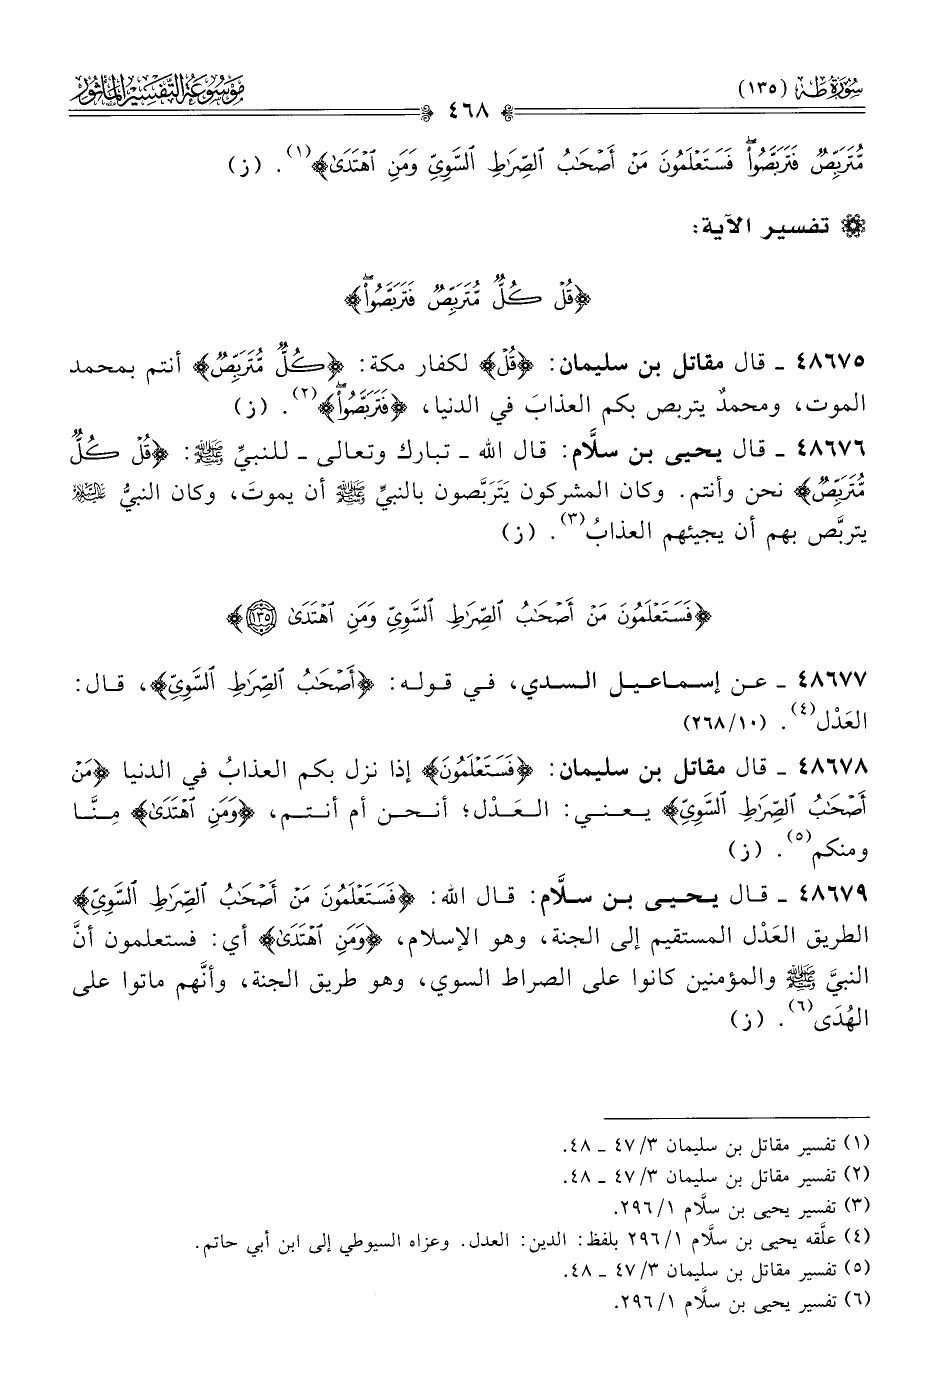 سُورَةُ طٰهٰ (١٣٥)
٤٦٨
مَوْسُوعَةُ التَّفْسِيرِ المَأْثُور
مُّتَرَبِّصٌ فَتَرَبَّصُواْۖ فَسَتَعۡلَمُونَ مَنۡ أَصۡحَٰبُ ٱلصِّرَٰطِ ٱلسَّوِيِّ وَمَنِ ٱهۡتَدَىٰ﴾(١). (ز)
تفسير الآية:
﴿قُلۡ كُلّٞ مُّتَرَبِّصٞ فَتَرَبَّصُواْۖ﴾
٤٨٦٧٥ ـ قال مقاتل بن سليمان: ﴿قُلۡ﴾ لكفار مكة: ﴿كُلّٞ مُّتَرَبِّصٞ﴾ أنتم بمحمد
الموت، ومحمدٌ يتربص بكم العذابَ في الدنيا، ﴿فَتَرَبَّصُواْۖ﴾(٢). (ز)
٤٨٦٧٦ ـ قال يحيى بن سلَّام: قال الله ـ تبارك وتعالى ـ للنبيِّ ﷺ: ﴿قُلۡ كُلّٞ
مُّتَرَبِّصٞ﴾ نحن وأنتم. وكان المشركون يَتَرَبَّصون بالنبيِّ ﷺ أن يموتَ، وكان النبيُّ عليه السلام
يتربَّص بهم أن يجيئهم العذابُ(٣). (ز)
﴿فَسَتَعۡلَمُونَ مَنۡ أَصۡحَٰبُ ٱلصِّرَٰطِ ٱلسَّوِيِّ وَمَنِ ٱهۡتَدَىٰ ١٣٥﴾
٤٨٦٧٧ ـ عن إسماعيل السدي، في قوله: ﴿أَصۡحَٰبُ ٱلصِّرَٰطِ ٱلسَّوِيِّ﴾، قال:
العَدْل(٤). (٢٦٨/١٠)
٤٨٦٧٨ ـ قال مقاتل بن سليمان: ﴿فَسَتَعۡلَمُونَ﴾ إذا نزل بكم العذابُ في الدنيا ﴿مَنۡ
أَصۡحَٰبُ ٱلصِّرَٰطِ ٱلسَّوِيِّ﴾ يعني: العَدْل؛ أنحن أم أنتم، ﴿وَمَنِ ٱهۡتَدَىٰ﴾ مِنَّا
ومنكم(٥). (ز)
٤٨٦٧٩ ـ قال يحيى بن سلَّام: قال الله: ﴿فَسَتَعۡلَمُونَ مَنۡ أَصۡحَٰبُ ٱلصِّرَٰطِ ٱلسَّوِيِّ﴾
الطريق العَدْل المستقيم إلى الجنة، وهو الإسلام، ﴿وَمَنِ ٱهۡتَدَىٰ﴾ أي: فستعلمون أنَّ
النبيَّ ﷺ والمؤمنين كانوا على الصراط السوي، وهو طريق الجنة، وأنَّهم ماتوا على
الهُدَى(٦). (ز)
(١) تفسير مقاتل بن سليمان ٤٧/٣ ـ ٤٨.
(٢) تفسير مقاتل بن سليمان ٤٧/٣ ـ ٤٨.
(٣) تفسير يحيى بن سلَّام ٢٩٦/١.
(٤) علَّقه يحيى بن سلَّام ٢٩٦/١ بلفظ: الدين: العدل. وعزاه السيوطي إلى ابن أبي حاتم.
(٥) تفسير مقاتل بن سليمان ٤٧/٣ ـ ٤٨.
(٦) تفسير يحيى بن سلَّام ٢٩٦/١.